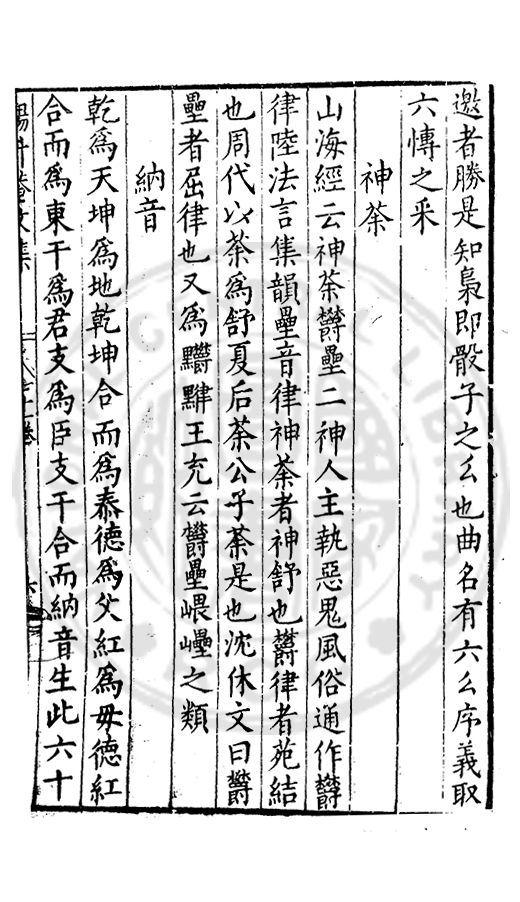 邀者勝是知梟即骰子之么也曲名有六么序義取
六博之采
神荼
山海經云神荼鬱壘二神人主執惡鬼風俗通作鬱
律陸法言集韻壘音律神荼者神舒也鬱律者苑結
也周代以荼為舒夏后荼公子荼是也沈休文曰鬱
壘者屈律也又為黮黓王充云鬱壘㟪㠥之類
納音
乾為天坤為地乾坤合而為泰德為父紅為毋德紅
合而為東干為君支為臣支干合而納音生此六十